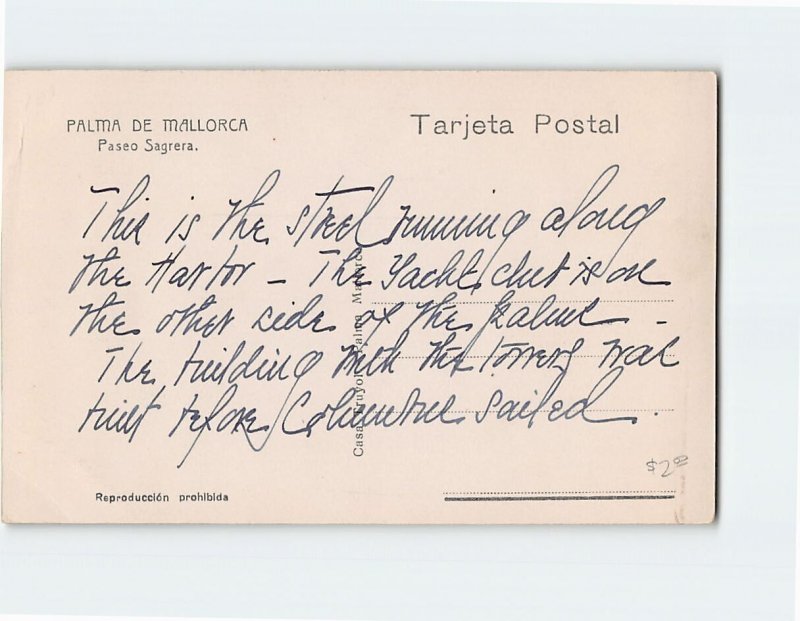 PALMA DE MALLORCA
Paseo Sagrera.
Tarjeta Postal
This is the street running along
the Harbor – The Yacht club is on
the other side of the palms –
The building with the towers was
built before Columbus sailed.
Casa Truyol, Palma Mallorca
$2.00
Reproducción prohibida